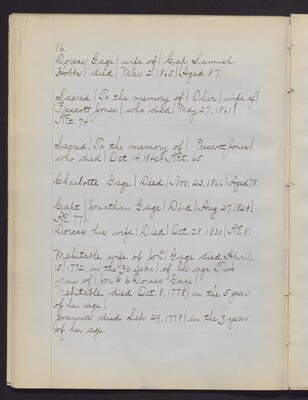 16.
Dorcas Gage | wife of | Cat. Samuel
Hobbs | died | Mar. 2, 1865 | Aged 87.
Sacred | To the memory of | Olive | wife of |
Prescott Jones | who died | May 27, 1861 |
Æt. 74
Sacred | To the memory of | Prescott Jones |
who died | Oct. 14, 1842 | Æt. 65
Charlotte Gage | Died | Nov. 23, 1866 | Aged 78.
Capt. | Jonathan Gage | Died | Aug. 27, 1824 |
Æ 77 |
Dorcas his wife | Died | Oct. 28, 1830 | Æ 81
Mehitable wife of Jona | Gage died April
15 | 1772, in the 30 year | of her age Two
of | Jona & Dorcas Gage |
Mehitable died Oct. 8, 1778, | in the 5 year
of her age |
Joanna died Seh 29, 1778 | in the 3 year
of her age.